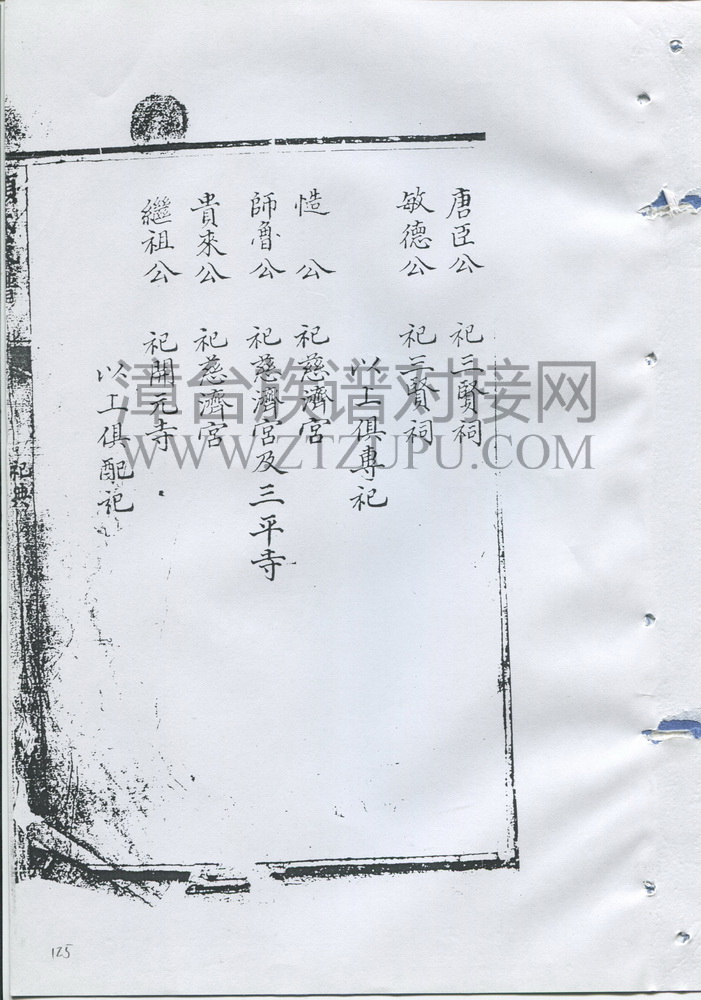 唐臣公 祀三賢祠
敏德公 祀三賢祠
以上俱專祀
慥 公 祀慈濟宮
師魯公 祀慈濟宮及三平寺
貴來公 祀慈濟宮
繼祖公 祀開元寺
以上俱配祀
祀典
漳台族谱对接网
WWW.ZTZUPU.COM
125